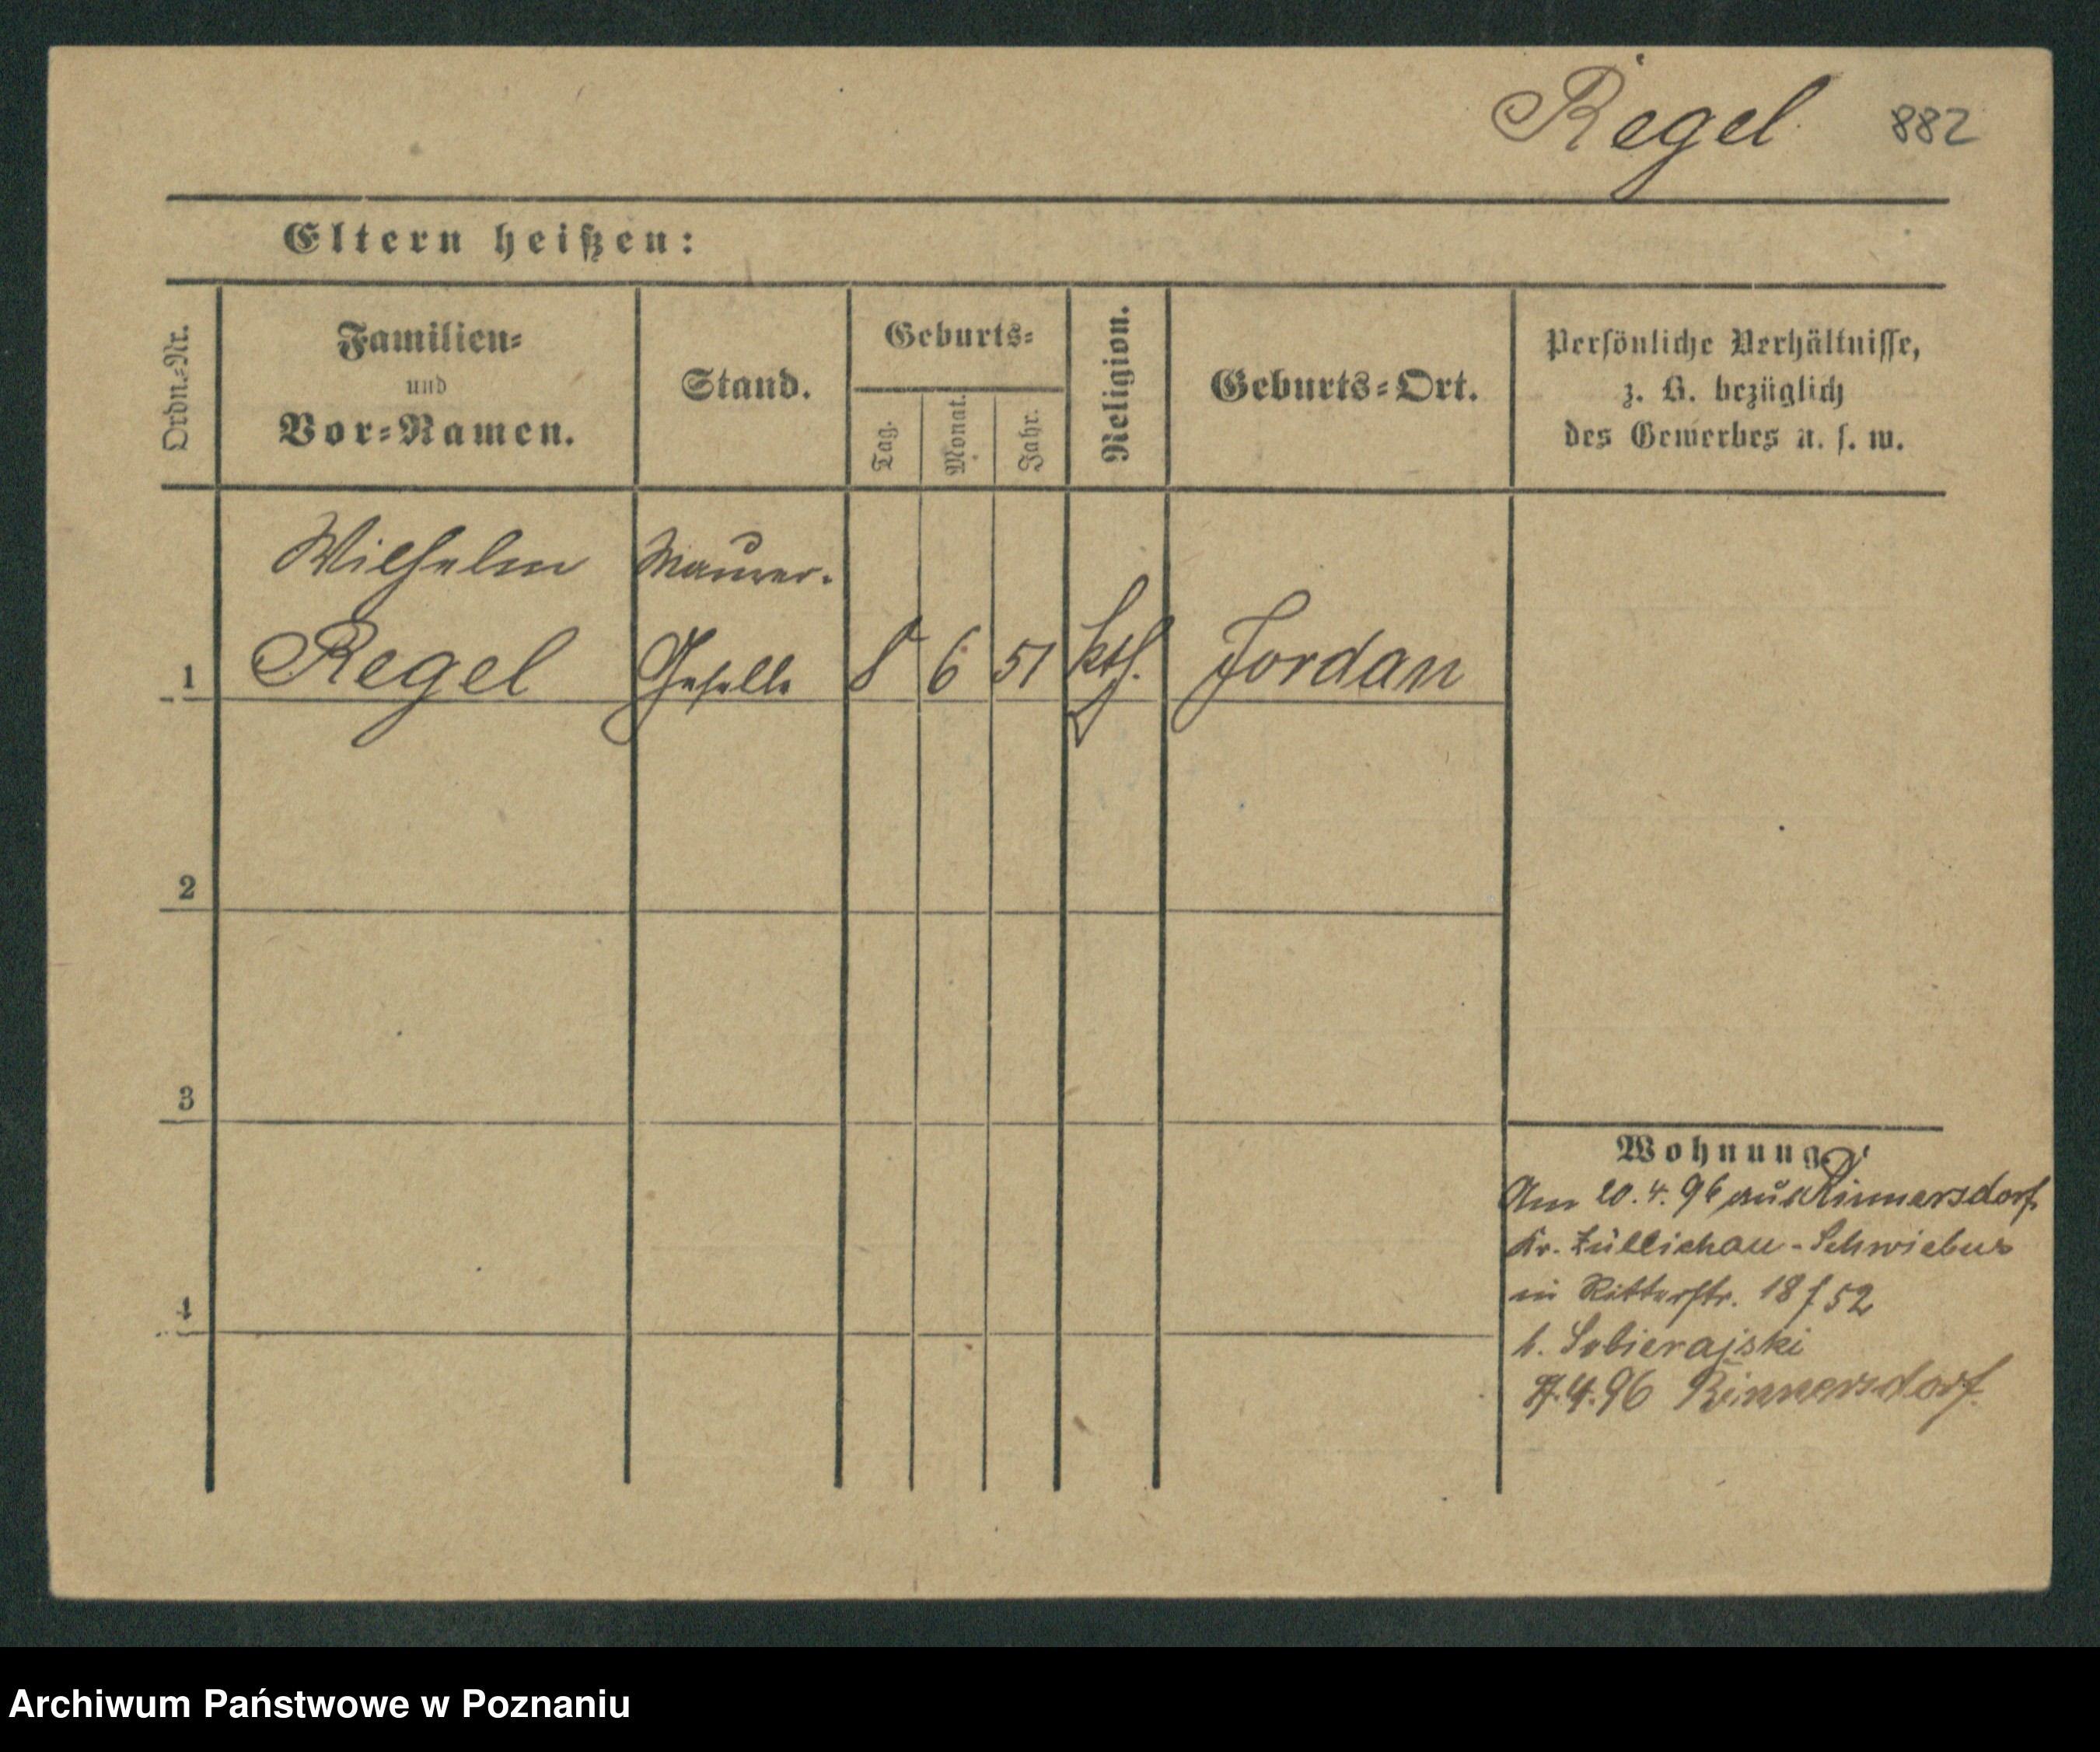 Regel 882
Eltern heißen:
Ordn.-Nr.
Familien-
und
Vor-Namen.
Stand.
Geburts-
Tag.
Monat.
Jahr.
Religion.
Geburts-Ort.
Persönliche Verhältnisse,
z. B. bezüglich
des Gewerbes u. s. w.
Wilhelm Maurer-
1 Regel Geselle 8 6 51 kth. Jordan
2
3
4
Wohnung.
Am 20. 4. 96 aus Rinnersdorf
Kr. Züllichau-Schwiebus
in Ritterstr. 18 f 52
b. Sobierajski
4. 96 Rinnersdorf.
Archiwum Państwowe w Poznaniu